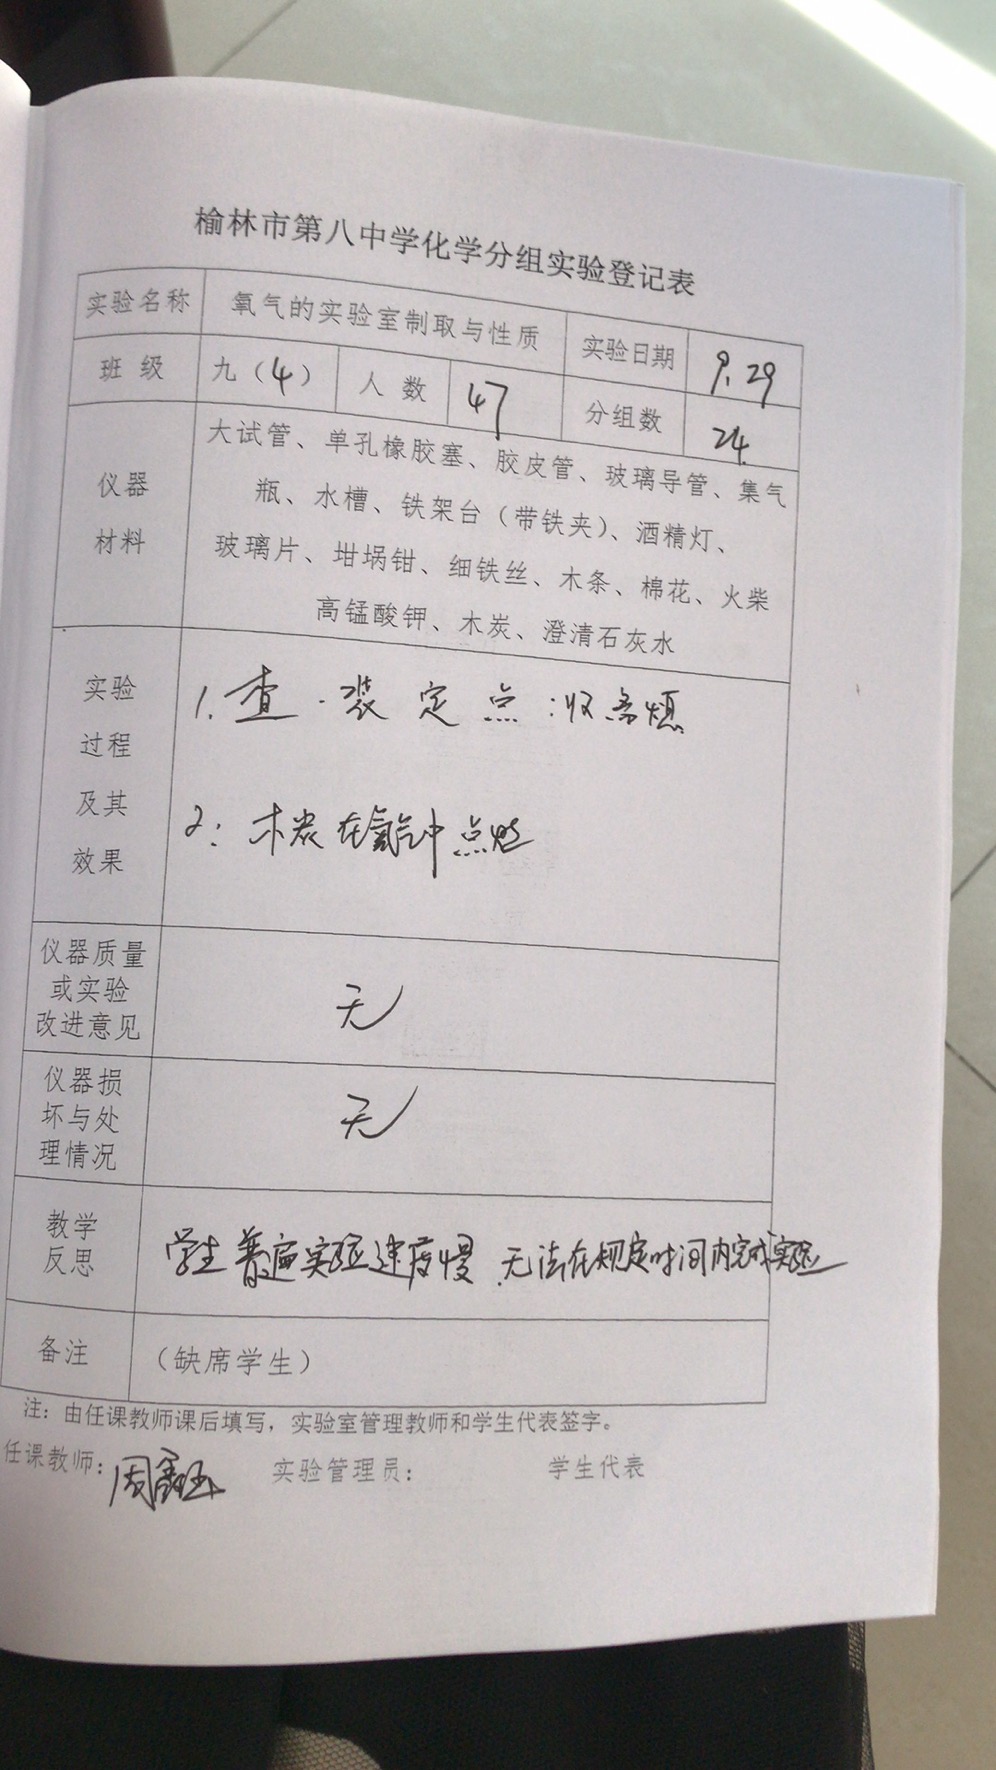 榆林市第八中学化学分组实验登记表
实验名称 氧气的实验室制取与性质 实验日期 9.29
班 级 九（4） 人 数 47 分组数 24
仪器
材料
大试管、单孔橡胶塞、胶皮管、玻璃导管、集气
瓶、水槽、铁架台（带铁夹）、酒精灯、
玻璃片、坩埚钳、细铁丝、木条、棉花、火柴
高锰酸钾、木炭、澄清石灰水
实验
过程
及其
效果
1. 查 装 定 点 收 熄
2: 木炭在氧气中点燃
仪器质量
或实验
改进意见
无
仪器损
坏与处
理情况
无
教学
反思
学生普遍实验速度慢 无法在规定时间内完成实验
备注 （缺席学生）
注：由任课教师课后填写，实验室管理教师和学生代表签字。
任课教师：周 实验管理员： 学生代表